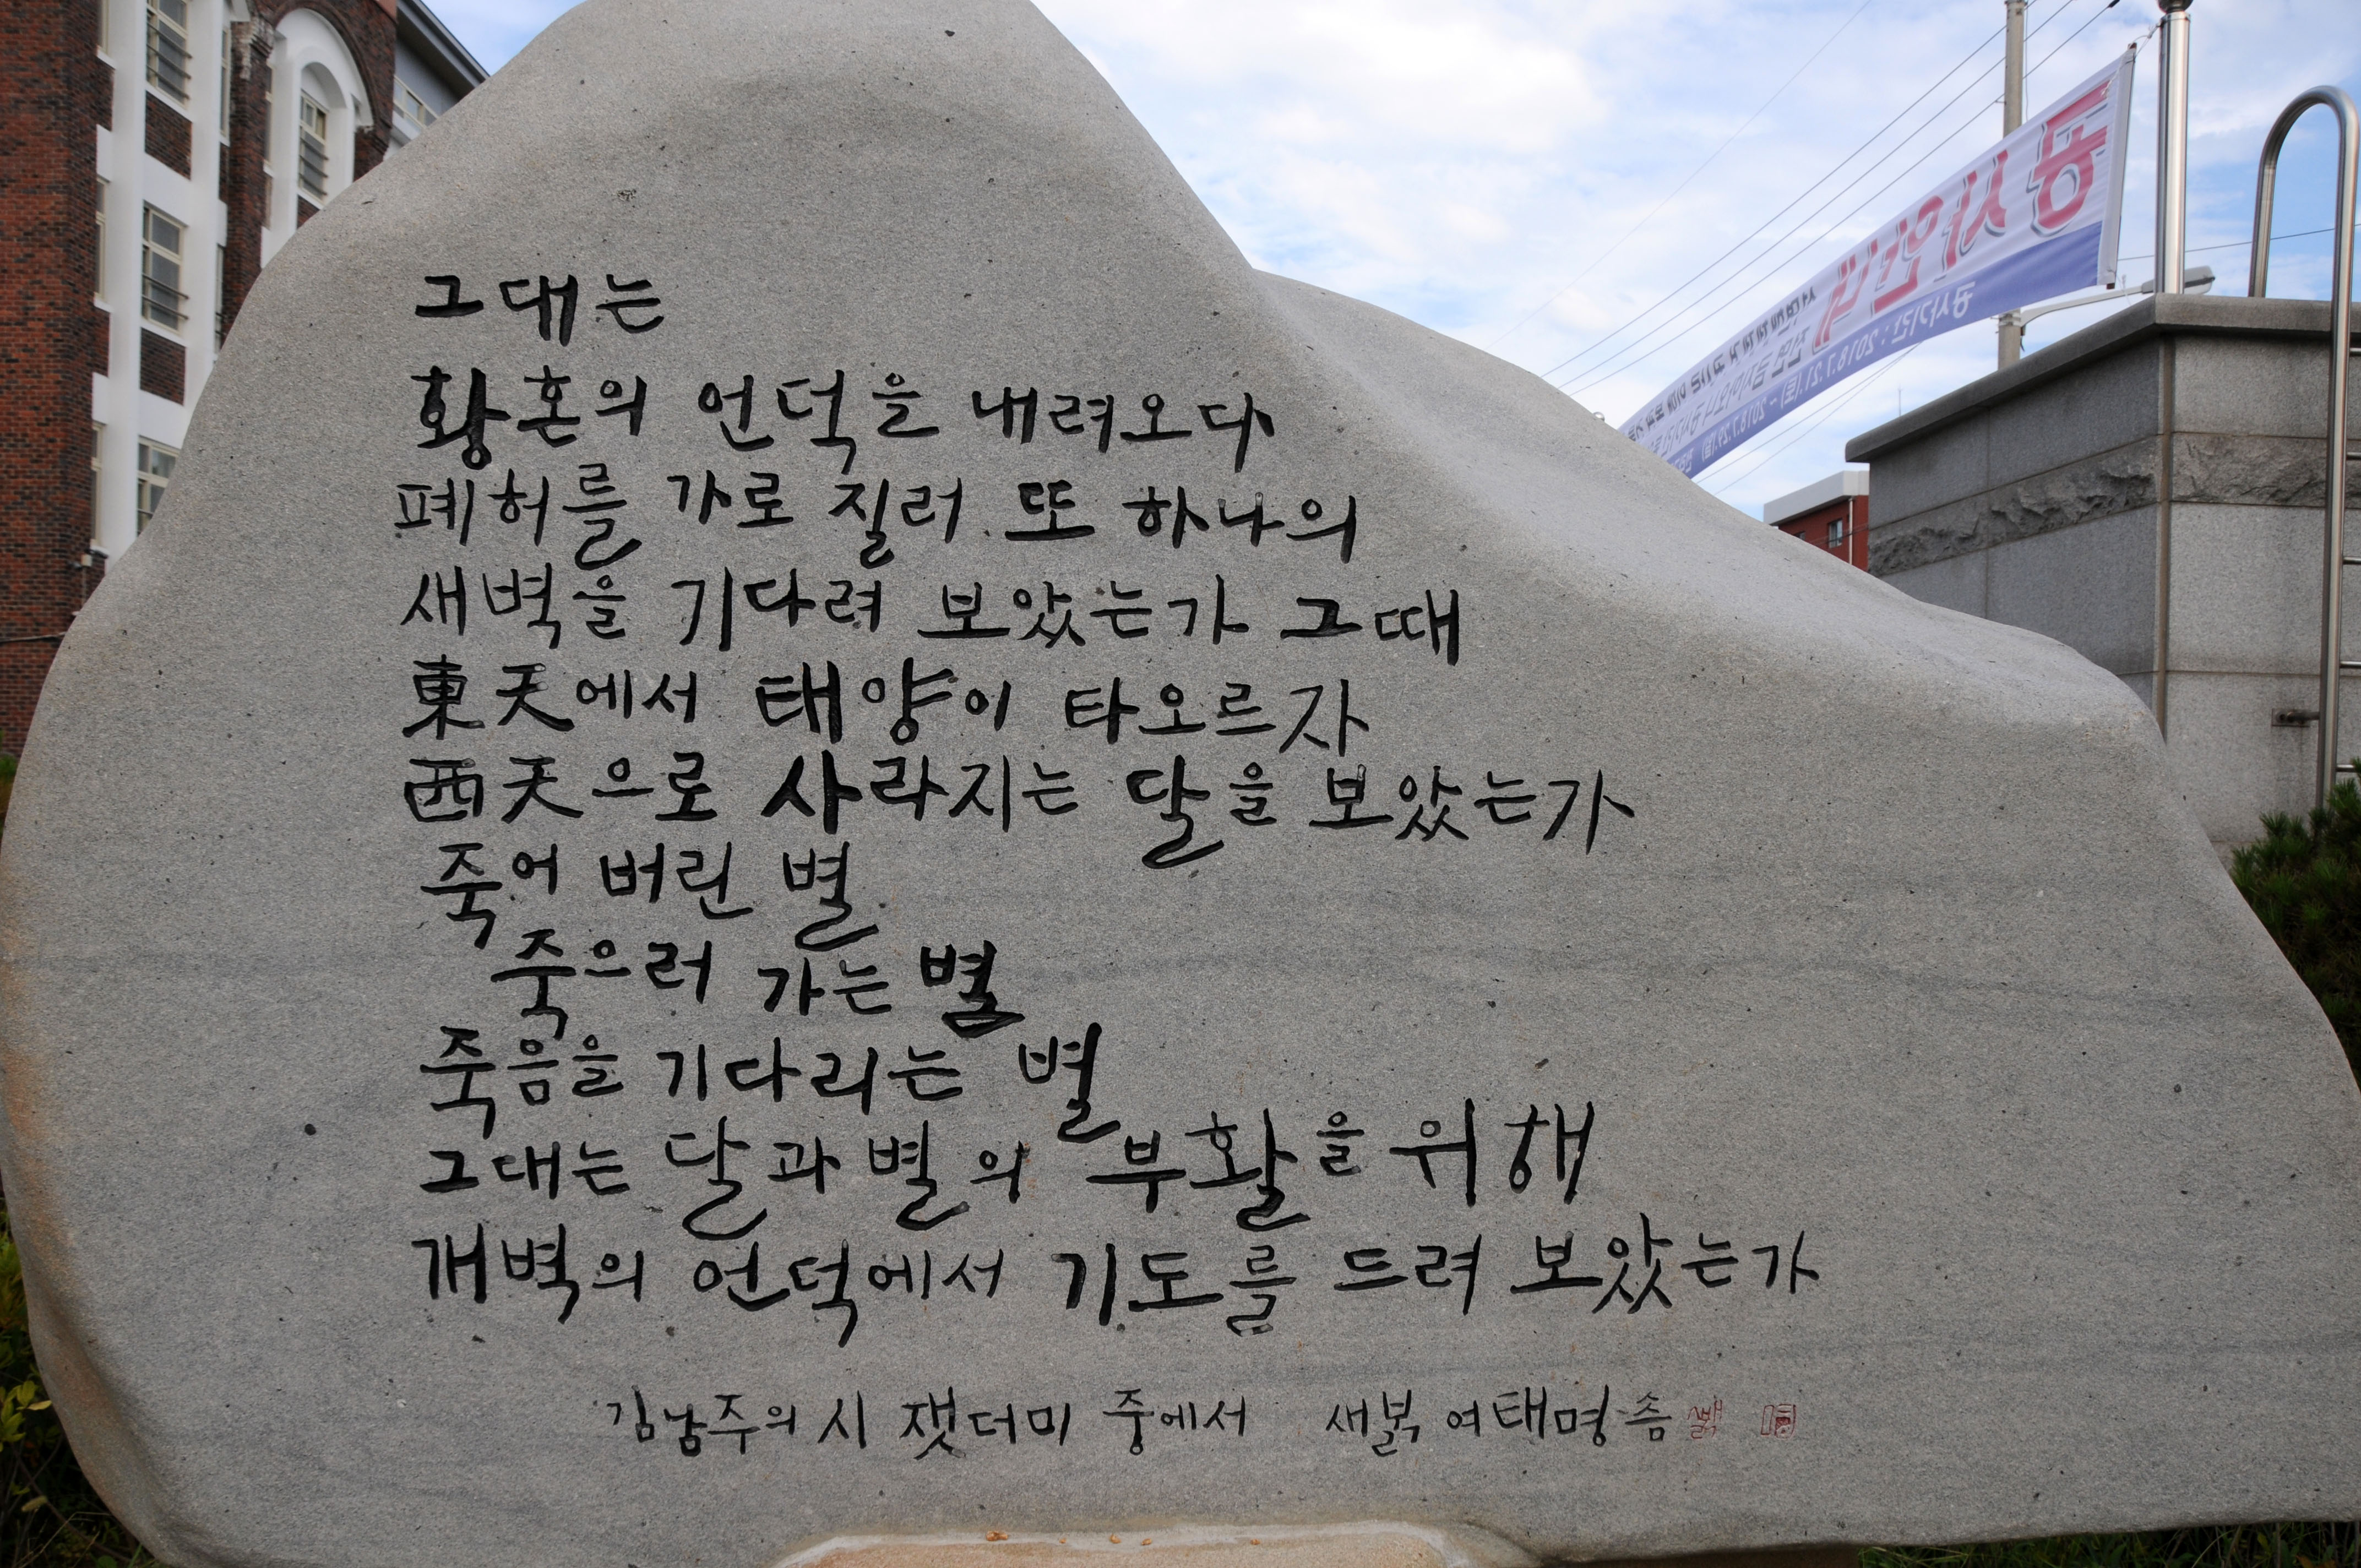 그대는
황혼의 언덕을 내려오다
폐허를 가로 질러 또 하나의
새벽을 기다려 보았는가 그때
東天에서 태양이 타오르자
西天으로 사라지는 달을 보았는가
죽어 버린 별
죽으러 가는 별
죽음을 기다리는 별
그대는 달과 별의 부활을 위해
개벽의 언덕에서 기도를 드려 보았는가
김남주의 시 잿더미 중에서 새붉 여태명 씀
공사안내
공사기간 : 2018.7.21(토) ~ 2018.7.29(일)